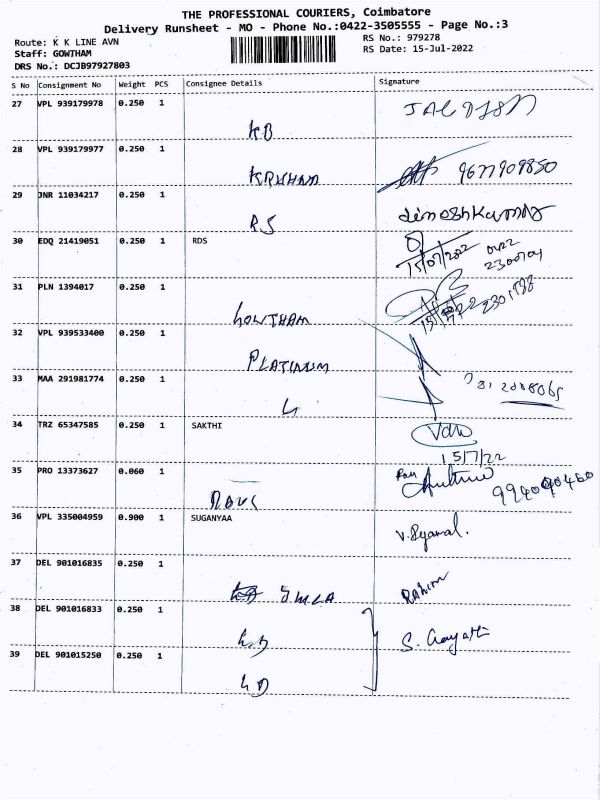 THE PROFESSIONAL COURIERS, Coimbatore
Delivery Runsheet - MO - Phone No.:0422-3505555 - Page No.:3
Route: K K LINE AVN
RS No.: 979278
Staff: GOWTHAM
RS Date: 15-Jul-2022
DRS No.: DCJB97927803
S No Consignment No Weight PCS Consignee Details Signature
27 VPL 939179978 0.250 1
KB
28 VPL 939179977 0.250 1
9677909850
29 JNR 11034217 0.250 1 dineshkumar
RS
30 EDQ 21419051 0.250 1 RDS
15/07/2022 0422
2300704
31 PLN 1394017 0.250 1
GOWTHAM
32 VPL 939533400 0.250 1
PLATINUM
33 MAA 291981774 0.250 1
34 TRZ 65347585 0.250 1 SAKTHI
15/7/22
35 PRO 13373627 0.060 1
36 VPL 335004959 0.900 1 SUGANYAA
37 DEL 901016835 0.250 1
38 DEL 901016833 0.250 1
S. Gayatri
39 DEL 901015250 0.250 1